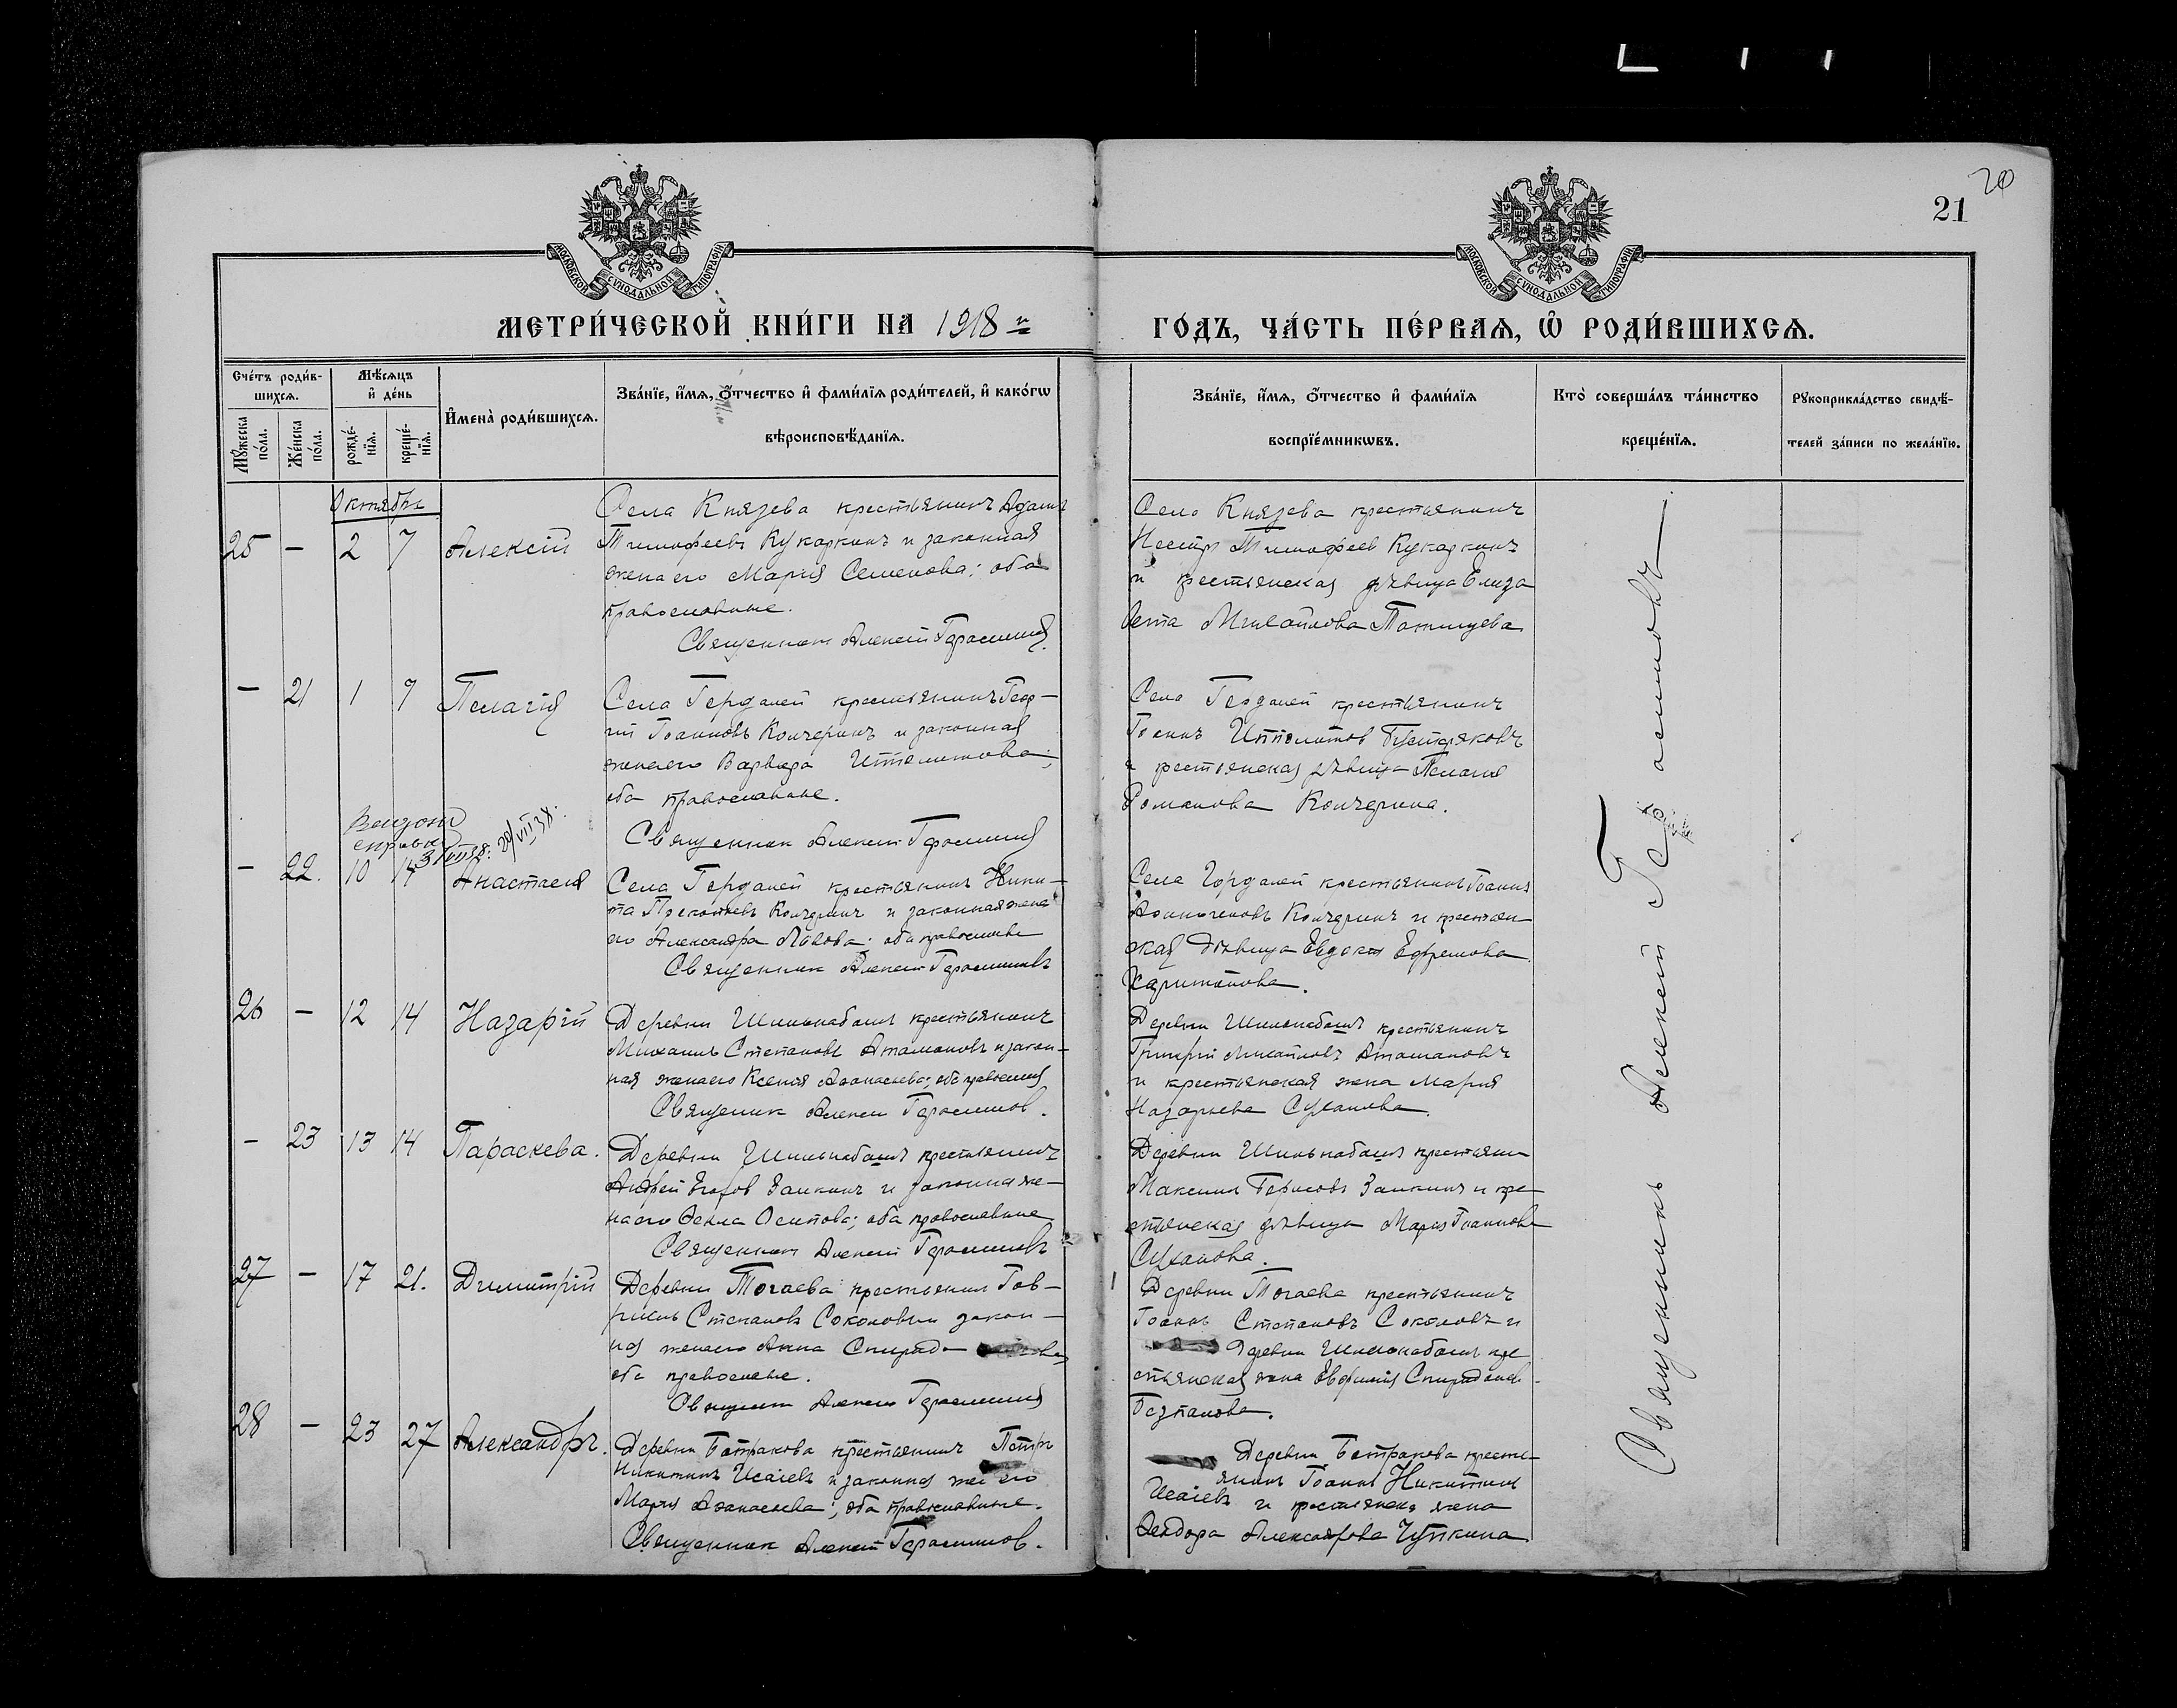 20
21
МОСКОВСКОЙ СУНОДАЛЬНОЙ ТИПОГРАФІИ
МОСКОВСКОЙ СУНОДАЛЬНОЙ ТИПОГРАФІИ
МЕТРИ́ЧЕСКОЙ КНИ́ГИ НА 1918 й
ГО́ДЪ, ЧА́СТЬ ПЕ́РВАѦ, Ѽ РОДИ́ВШИХСѦ.
Сче́тъ роди́в-
шихсѧ.
Мꙋ́жеска по́ла.
Же́нска по́ла.
Мѣ́сѧцъ
и҆ де́нь
рожде́-нїѧ.
креще́-нїѧ.
И҆мена̀ роди́вшихсѧ.
Зва́нїе, и҆́мѧ, ѻ҆́тчество и҆ фами́лїѧ роди́телей, и҆ како́гѡ
вѣроисповѣ́данїѧ.
Зва́нїе, и҆́мѧ, ѻ҆́тчество и҆ фами́лїѧ
воспрїе́мникѡвъ.
Кто̀ соверша́лъ та́инство
креще́нїѧ.
Рꙋкоприкла́дство свидѣ́-
телей за́писи по жела́нїю.
Октябрь
25 — 2 7 Алексій
Села Князева крестьянинъ Адамъ
Тимофеевъ Кукаркинъ и законная
жена его Марія Семенова; оба
православные.
Священникъ Алексій Герасимовъ
Села Князева крестьянинъ
Тимофеев Кукаркинъ
и крестьянская дѣвица Елиза
вета Михайлова
— 21 1 7 Пелагія
Села Гердалей крестьянинъ Геор-
гій Іоанновъ Кончеринъ и законная
жена его Варвара Ипполитова;
оба православные.
Священник Алексій Герасимовъ
Села Гердалей крестьянинъ
Іоаннъ Ипполитов
и крестьянская дѣвица Пелагія
Романова Кончерина.
Выдана
справка
— 22. 10 14 Анастасія
Села Гердалей крестьянинъ Ники-
та Прокопьевъ Кончеринъ и законная жена
его Александра Львова; оба православные
Священник Алексій Герасимовъ
Села Гердалей крестьянинъ Іоаннъ
Кончеринъ и крестьян-
ская дѣвица Евдокія Ефремова
Харитонова.
26 — 12 14 Назарій
Деревни Шильнабашъ крестьянинъ
Михаилъ Степановъ Атамановъ и закон-
ная жена его Ксенія Афанасьева; оба православные
Священник Алексій Герасимов.
Деревни Шильнабашъ крестьянинъ
Григорій Михайловъ Атамановъ
и крестьянская жена Марія
Назарьева Суханова.
— 23 13 14 Параскева.
Деревни Шильнабашъ крестьянинъ
Андрей Егоров Заикинъ и законная же-
на его Фекла Осипова; оба православные
Священник Алексій Герасимовъ
Деревни Шильнабашъ крестьянин
Максимъ Борисовъ Заикинъ и кре-
стьянская дѣвица Марія Іоаннова
Суханова.
27 — 17 21. Димитрій
Деревни Тогаева крестьянин Гав-
ріилъ Степановъ Соколовъ и закон-
ная жена его Анна
оба православные.
Священник Алексій Герасимовъ
Деревни Тогаева крестьянинъ
Іоаннъ Степановъ Соколовъ и
деревни Шильнабашъ кре
стьянская жена Евфимія Спиридонов
28 — 23 27 Александръ.
Деревни Батракова крестьянинъ Петръ
Никитинъ Исаіевъ и законная жена его
Марія Афанасьева; оба православные.
Священник Алексій Герасимов.
Деревни Батракова кресть-
янинъ Іоаннъ Никитинъ
Исаіевъ и крестьянская жена
Феодора Александрова Чупкина
Священникъ Алексій Герасимовъ